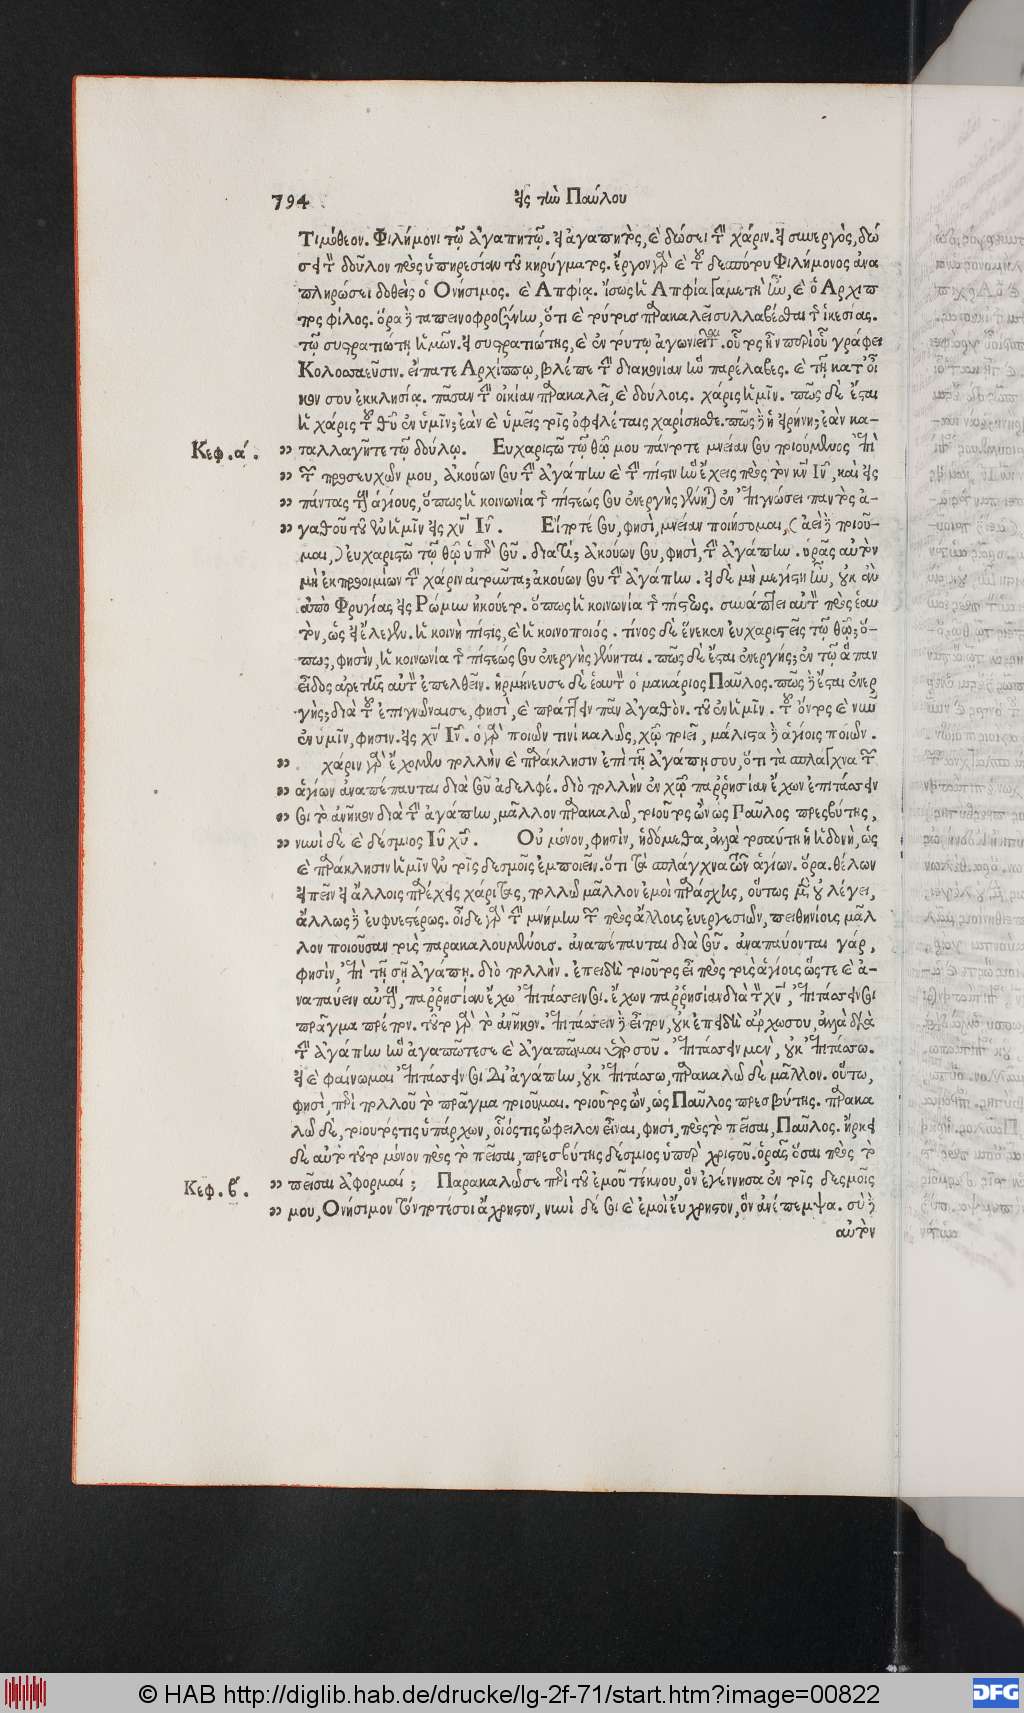 794 εἰς τὴν Παύλου
Τιμόθεον. Φιλήμονι τῷ ἀγαπητῷ. εἰ ἀγαπητὸς, καὶ δώσει τὴν χάριν. εἰ συνεργὸς, δώ
σει τὸν δοῦλον πρὸς ὑπηρεσίαν τοῦ κηρύγματος. ἔργον γὰρ καὶ τοῦ δεσπότου Φιλήμονος ἀνα
πληρώσει δοθεὶς ὁ Ονήσιμος. καὶ Απφίᾳ. ἴσως ἡ Απφία γαμετὴ ἦν, καὶ ὁ Αρχιπ
πος φίλος. ὅρα δὲ ταπεινοφροσύνην, ὅτι καὶ τούτους παρακαλεῖ συλλαβέσθαι τῆς ἱκεσίας.
τῷ συστρατιώτῃ ἡμῶν. εἰ συστρατιώτης, καὶ ἐν τούτῳ ἀγωνιεῖται. οὗτός ἐστιν περὶ οὗ γράφει
Κολοσσαεῦσιν. εἴπατε Αρχίππῳ, βλέπε τὴν διακονίαν ἣν παρέλαβες. καὶ τῇ κατ' οἶ
κον σου ἐκκλησίᾳ. πᾶσαν τὴν οἰκίαν παρακαλεῖ, καὶ δούλοις. χάρις ἡμῖν. πῶς δὲ ἔσται
ἡ χάρις τοῦ θεοῦ ἐν ὑμῖν; ἐὰν καὶ ὑμεῖς τοῖς ὀφειλέταις χαρίσησθε. πῶς δὲ ἡ εἰρήνη; ἐὰν κα-
Κεφ. α. » ταλλαγῆτε τῷ δούλῳ. Ευχαριστῶ τῷ θεῷ μου πάντοτε μνείαν σου ποιούμενος ἐπὶ
» τῶν προσευχῶν μου, ἀκούων σου τὴν ἀγάπην καὶ τὴν πίστιν ἣν ἔχεις πρὸς τὸν κν Ιν, καὶ εἰς
» πάντας τοὺς ἁγίους, ὅπως ἡ κοινωνία τῆς πίστεώς σου ἐνεργὴς γένηται ἐν ἐπιγνώσει παντὸς ἀ-
» γαθοῦ τοῦ ἐν ἡμῖν εἰς χν Ιν. Εἴποτέ σου, φησὶ, μνείαν ποιήσομαι, (ἀεὶ δὲ ποιοῦ-
μαι,) εὐχαριστῶ τῷ θεῷ ὑπὲρ σοῦ. διατί; ἀκούων σου, φησὶ, τὴν ἀγάπην. ὁρᾷς αὐτὸν
μὴ ἐκ προοιμίων τὴν χάριν αἰτοῦντα; ἀκούων σου τὴν ἀγάπην. εἰ δὲ μὴ μεγίστη ἦν, οὐκ ἂν
ἀπὸ Φρυγίας εἰς Ρώμην ἠκούετο. ὅπως ἡ κοινωνία τῆς πίστεως. συνάπτει αὐτὸν πρὸς ἑαυ
τὸν, ὡς εἰ ἔλεγεν. ἡ κοινὴ πίστις, καὶ ἡ κοινοποιός. τίνος δὲ ἕνεκεν εὐχαριστεῖς τῷ θεῷ; ὅ-
πως, φησὶν, ἡ κοινωνία τῆς πίστεώς σου ἐνεργὴς γένηται. πῶς δὲ ἔσται ἐνεργής; ἐν τῷ ἅπαν
εἶδος ἀρετῆς αὐτὸν ἐπελθεῖν. ἡρμήνευσε δὲ ἑαυτὸν ὁ μακάριος Παῦλος. πῶς δὲ ἔσται ἐνερ
γής; διὰ τοῦ ἐπιγνῶναί σε, φησὶ, καὶ πράττειν πᾶν ἀγαθόν. τοῦ ἐν ἡμῖν. τοῦ ὄντος καὶ νῦν
ἐν ὑμῖν, φησιν. εἰς χν Ιν. ὁ γὰρ ποιῶν τινὶ καλῶς, χῷ ποιεῖ, μάλιστα δὲ ἁγίοις ποιῶν.
» χάριν γὰρ ἔχομεν πολλὴν καὶ παράκλησιν ἐπὶ τῇ ἀγάπῃ σου, ὅτι τὰ σπλάγχνα τῶν
» ἁγίων ἀναπέπαυται διὰ σοῦ ἀδελφέ. διὸ πολλὴν ἐν χῷ παρρησίαν ἔχων ἐπιτάσσειν
» σοι τὸ ἀνῆκον διὰ τὴν ἀγάπην, μᾶλλον παρακαλῶ, τοιοῦτος ὢν ὡς Παῦλος πρεσβύτης,
» νυνὶ δὲ καὶ δέσμιος Ιυ χυ. Οὐ μόνον, φησὶν, ἡδόμεθα, ἀλλὰ τοσαύτη ἡ ἡδονὴ, ὡς
καὶ παράκλησιν ἡμῖν ἐν τοῖς δεσμοῖς ἐμποιεῖν. ὅτι τὰ σπλάγχνα τῶν ἁγίων. ὅρα. θέλων
εἰπεῖν εἰ ἄλλοις παρέχεις χάριτας, πολλῷ μᾶλλον ἐμοὶ παράσχεις, οὕτως μὲν οὐ λέγει,
ἄλλως δὲ εὐφυεστέρως. οἶδε γὰρ τὴν μνήμην τῶν πρὸς ἄλλοις εὐεργεσιῶν, πειθηνίοις μᾶλ
λον ποιοῦσαν τοῖς παρακαλουμένοις. ἀναπέπαυται διὰ σοῦ. ἀναπαύονται γάρ,
φησὶν, ἐπὶ τῇ σῇ ἀγάπῃ. διὸ πολλήν. ἐπειδὴ τοιοῦτος εἶ πρὸς τοὺς ἁγίοις ὥστε καὶ ἀ-
ναπαύειν αὐτοὺς, παρρησίαν ἔχω ἐπιτάσσειν σοι. ἔχων παρρησίαν διὰ τὸν χν, ἐπιτάσσειν σοι
πρᾶγμα πρέπον. τοῦτο γὰρ τὸ ἀνῆκον. ἐπιτάσσειν δὲ εἶπον, οὐκ ἐπειδὴ ἄρχω σου, ἀλλὰ διὰ
τὴν ἀγάπην ἣν ἀγαπῶ τέ σε καὶ ἀγαπῶμαι ὑπὸ σοῦ. ἐπιτάσσειν μὲν, οὐκ ἐπιτάσσω.
εἰ καὶ φαίνωμαι ἐπιτάσσειν σοι δι' ἀγάπην, οὐκ ἐπιτάσσω, παρακαλῶ δὲ μᾶλλον. οὕτω,
φησὶ, περὶ πολλοῦ τὸ πρᾶγμα ποιοῦμαι. τοιοῦτος ὢν, ὡς Παῦλος πρεσβύτης. παρακα
λῶ δὲ, τοιοῦτός τις ὑπάρχων, οἷός τις ὤφειλεν εἶναι, φησι, πρὸς τὸ πεῖσαι, Παῦλος. ἤρκει
δὲ αὐτὸ τοῦτο μόνον πρὸς τὸ πεῖσαι, πρεσβύτης δέσμιος ὑπὲρ χριστοῦ. ὁρᾷς ὅσαι πρὸς τὸ
Κεφ. β. » πεῖσαι ἀφορμαί; Παρακαλῶ σε περὶ τοῦ ἐμοῦ τέκνου, ὃν ἐγέννησα ἐν τοῖς δεσμοῖς
» μου, Ονήσιμον τόν ποτέ σοι ἄχρηστον, νυνὶ δέ σοι καὶ ἐμοὶ εὔχρηστον, ὃν ἀνέπεμψα. σὺ δὲ
αὐτὸν
© HAB http://diglib.hab.de/drucke/lg-2f-71/start.htm?image=00822
DFG